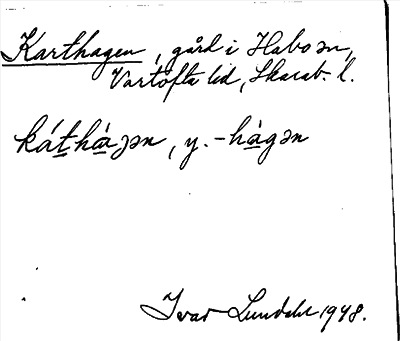 Karthagen, gård i Habo sn,
Vartofta hd, Skarab. l.
ká̱thá̱ȝən, y. -há̱gən
Ivar Lundahl 1948.